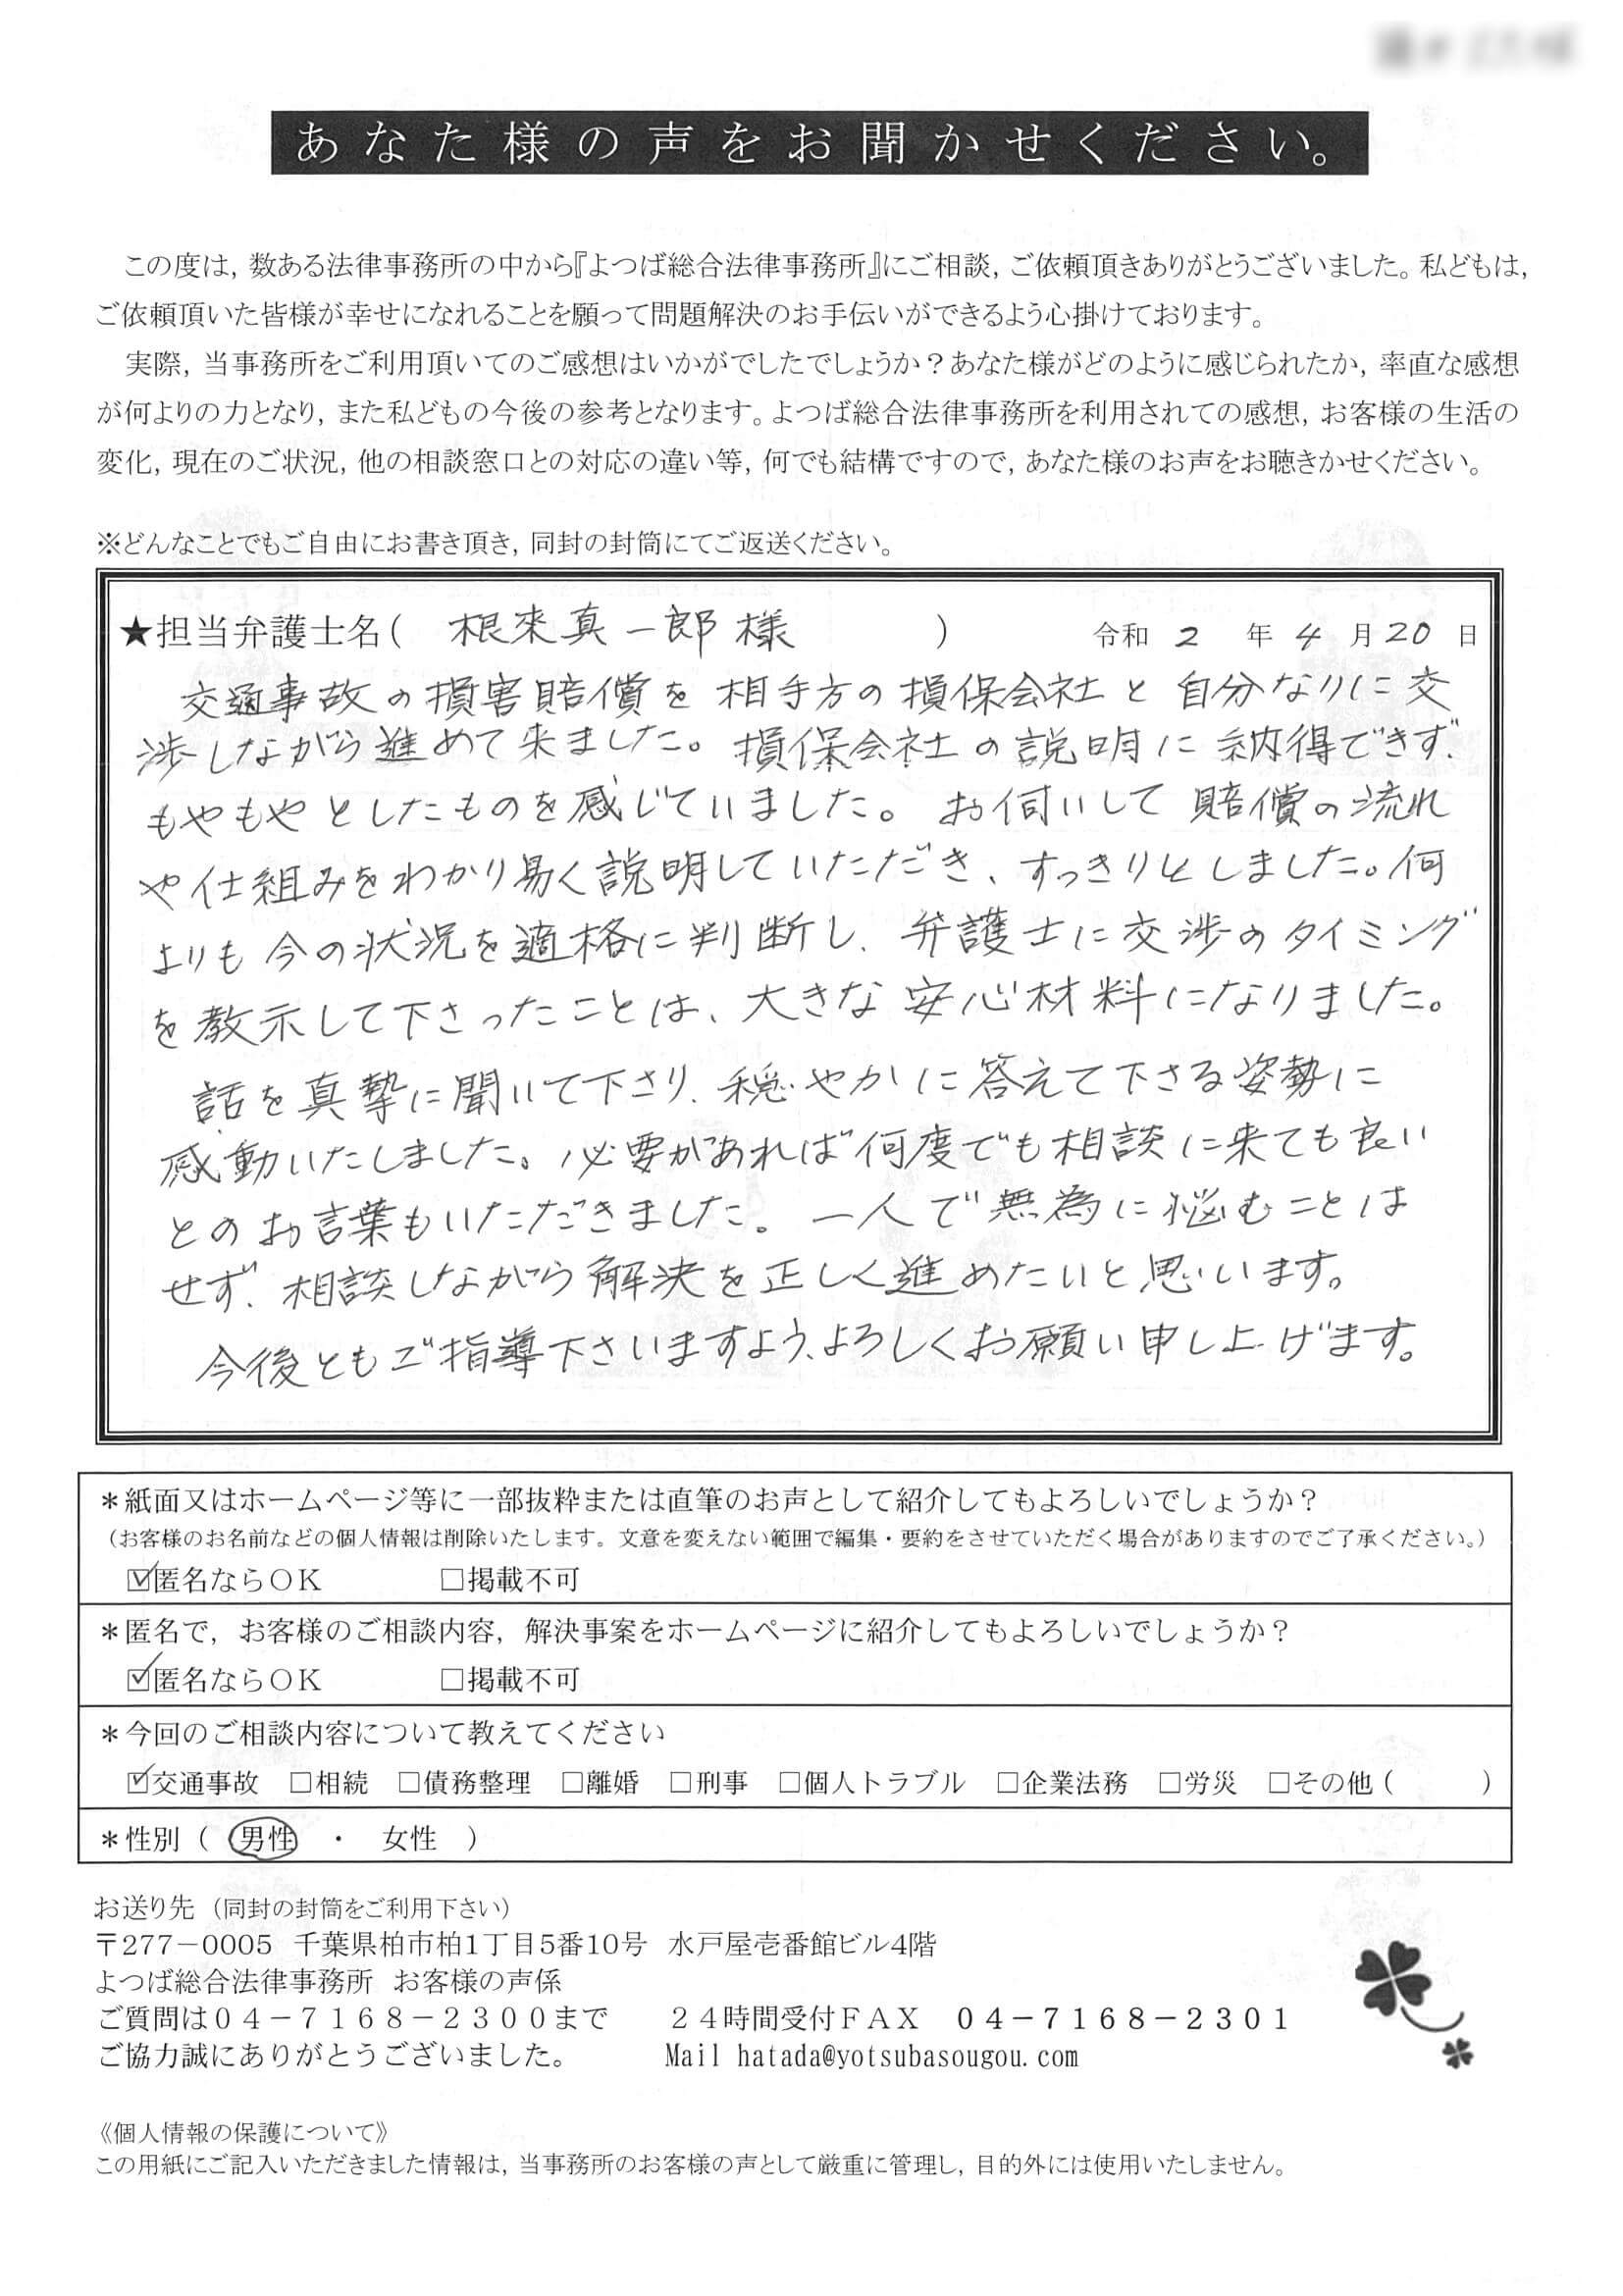 あなた様の声をお聞かせください。
この度は，数ある法律事務所の中から『よつば総合法律事務所』にご相談，ご依頼頂きありがとうございました。私どもは，
ご依頼頂いた皆様が幸せになれることを願って問題解決のお手伝いができるよう心掛けております。
実際，当事務所をご利用頂いてのご感想はいかがでしたでしょうか？あなた様がどのように感じられたか，率直な感想
が何よりの力となり，また私どもの今後の参考となります。よつば総合法律事務所を利用されての感想，お客様の生活の
変化，現在のご状況，他の相談窓口との対応の違い等，何でも結構ですので，あなた様のお声をお聴きかせください。
※どんなことでもご自由にお書き頂き，同封の封筒にてご返送ください。
★担当弁護士名（ 根來真一郎様 ） 令和 2 年 4 月 20 日
交通事故の損害賠償を相手方の損保会社と自分なりに交
渉しながら進めて来ました。損保会社の説明に納得できず、
もやもやとしたものを感じていました。お伺いして賠償の流れ
や仕組みをわかり易く説明していただき、すっきりとしました。何
よりも今の状況を適格に判断し、弁護士に交渉のタイミング
を教示して下さったことは、大きな安心材料になりました。
話を真摯に聞いて下さり、穏やかに答えて下さる姿勢に
感動いたしました。必要があれば何度でも相談に来ても良い
とのお言葉もいただきました。一人で無為に悩むことは
せず、相談しながら解決を正しく進めたいと思います。
今後ともご指導下さいますよう、よろしくお願い申し上げます。
＊紙面又はホームページ等に一部抜粋または直筆のお声として紹介してもよろしいでしょうか？
（お客様のお名前などの個人情報は削除いたします。文意を変えない範囲で編集・要約をさせていただく場合がありますのでご了承ください。）
☑匿名ならＯＫ □掲載不可
＊匿名で，お客様のご相談内容，解決事案をホームページに紹介してもよろしいでしょうか？
☑匿名ならＯＫ □掲載不可
＊今回のご相談内容について教えてください
☑交通事故 □相続 □債務整理 □離婚 □刑事 □個人トラブル □企業法務 □労災 □その他（ ）
＊性別（ 男性 ・ 女性 ）
お送り先（同封の封筒をご利用下さい）
〒277－0005 千葉県柏市柏1丁目5番10号 水戸屋壱番館ビル4階
よつば総合法律事務所 お客様の声係
ご質問は０４－７１６８－２３００まで ２４時間受付ＦＡＸ ０４－７１６８－２３０１
ご協力誠にありがとうございました。 Mail hatada@yotsubasougou.com
《個人情報の保護について》
この用紙にご記入いただきました情報は，当事務所のお客様の声として厳重に管理し，目的外には使用いたしません。